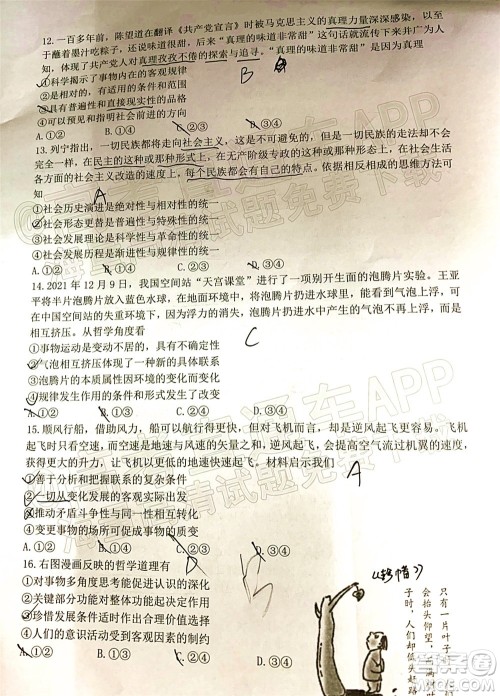 12. 一百多年前，陈望道在翻译《共产党宣言》时被马克思主义的真理力量深深感染，以至
于蘸着墨汁吃粽子，还说味道很甜，后来“真理的味道非常甜”这句话就流传了下来并为人
知，体现了共产党人对真理孜孜不倦的探索与追寻。“真理的味道非常甜”是因为
①一切科学都有各自的客观规律
②真理都有各自的条件和范围
③具有普遍性和直接现实性的品格
④可以预见和指明社会前进的方向
A.①② B.①③ C.②④ D.③④
B
13. 列宁指出，一切民族都将走向社会主义，这是不可避免的，但是一切民族的走法却不会完
全一样，在民主的这种或那种形式上，在无产阶级专政的这种或那种形态上，在社会生活
各方面的社会主义改造的速度上，每个民族都会有自己的特点。联系相关的思维方法可
知
A
①社会历史演进是绝对性与相对性的统一
②社会形态更替是普遍性与特殊性的统一
③社会发展理论是科学性与革命性的统一
④社会发展规律是客观性与历史性的统一
A.①② B.①③ C.②④ D.③④
14. 2021 年 12 月 9 日，我国空间站“天宫课堂”进行了一项别开生面的泡腾片实验。王亚
平将半片泡腾片放入蓝色水球，在地面环境中，将泡腾片扔进水里，能看到气泡上浮；
在中国空间站的失重环境下，泡腾片扔进水球后，产生的气泡不再上浮，
相互挤压。从哲学角度看
C
①事物运动是变动不居的，无确定性
②气泡相互挤压体现了一种新的具体联系
③泡腾片的本质属性因环境的变化而变化
④规律发生作用的条件具有客观性
A.①② B.①③ C.②④ D.③④
15. 顺风行船，借助风力，船可以航行的更快，但对飞机而言，却是逆风起飞更快。飞机
起飞时只看空速，而空速是地速与风速的矢量之和，逆风起飞，会提高空气流过机翼的速度，
获得的升力更大，让飞机以更低的地速快速起飞。材料启示我们
A
①善于分析和把握联系的复杂条件
②一切从变化发展的客观实际出发
③推动矛盾斗争性与同一性相互转化
④变更事物的场所可促成事物的质变
A.①② B.①③ C.②④ D.③④
16. 右图漫画反映的哲学道理有
①对事物多角度思考能促进认识的深化
②关键部分功能对整体功能起决定作用
③珍惜发展条件才能作出合理价值选择
④人们的意识活动受到客观实际的制约
A.①② B.①③ C.②④ D.③④
《珍惜》
只有一片叶子
会抬头仰望，
子时，人们却低头赶路